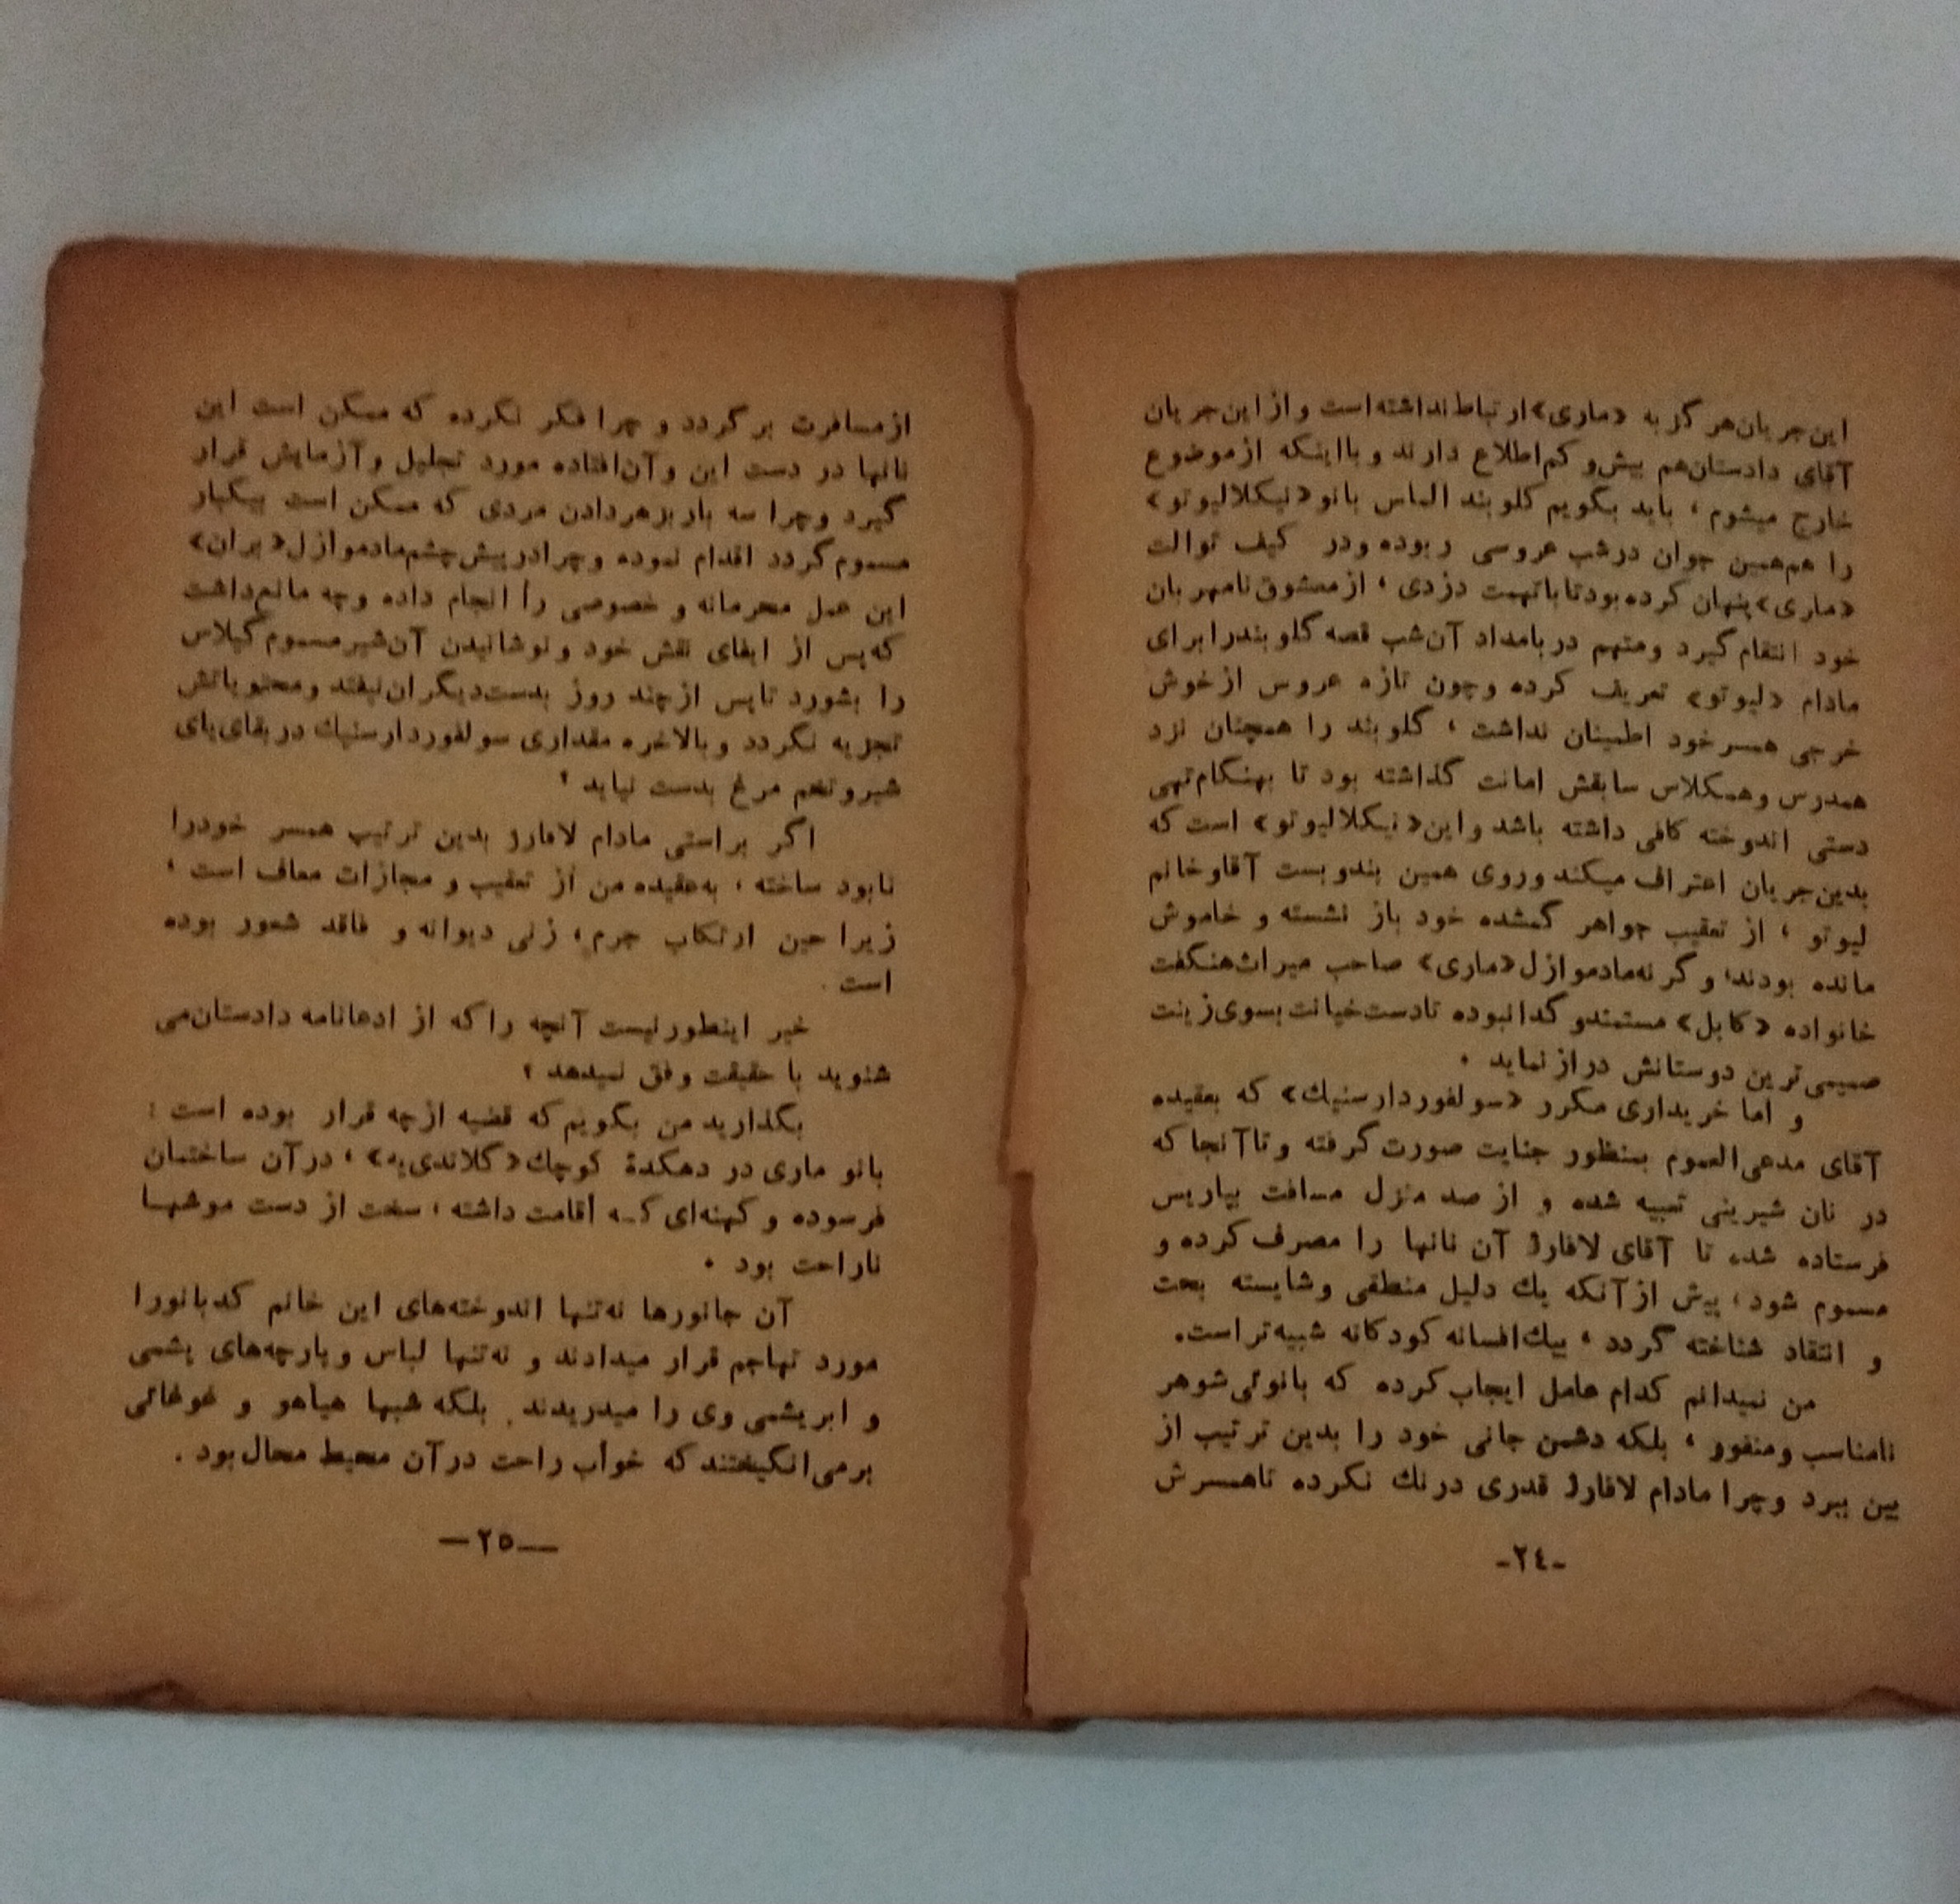 این جریان هرگز به «ماری» ارتباط نداشته است و از این جریان
آقای دادستان هم بیش و کم اطلاع دارند و با اینکه از موضوع
خارج میشوم ، باید بگویم گلوبند الماس بانو «نیکلالیوتو»
را هم همین جوان در شب عروسی ربوده و در کیف توالت
«ماری» پنهان کرده بود تا با تهمت دزدی ، از معشوق نامهربان
خود انتقام گیرد و متهم در بامداد آن شب قصه گلوبند را برای
مادام «لیوتو» تعریف کرده و چون تازه عروس از خوش
خرجی همسر خود اطمینان نداشت ، گلوبند را همچنان نزد
همدرس و همکلاس سابقش امانت گذاشته بود تا بهنگام تهی
دستی اندوخته کافی داشته باشد و این «نیکلالیوتو» است که
بدین جریان اعتراف میکند و روی همین بند و بست آقا و خانم
لیوتو ، از تعقیب جواهر گمشده خود باز نشسته و خاموش
مانده بودند، و گرنه مادموازل «ماری» صاحب میراث هنگفت
خانواده «کاپل» مستمند و گدا نبوده تا دست خیانت بسوی زینت
صمیمی ترین دوستانش دراز نماید .
و اما خریداری مکرر «سولفوردارسنیك» که بعقیده
آقای مدعی العموم بمنظور جنایت صورت گرفته و تا آنجا که
در نان شیرینی تعبیه شده و از صد منزل مسافت بپاریس
فرستاده شده تا آقای لافارژ آن نانها را مصرف کرده و
مسموم شود ، بیش از آنکه یك دلیل منطقی و شایسته بحث
و انتقاد شناخته گردد ، بیك افسانه کودکانه شبیه تر است.
من نمیدانم کدام عامل ایجاب کرده که بانوئی شوهر
نامناسب و منفور ، بلکه دشمن جانی خود را بدین ترتیب از
بین ببرد و چرا مادام لافارژ قدری درنك نکرده تا همسرش
-٢٤-
از مسافرت برگردد و چرا فکر نکرده که ممکن است این
نانها در دست این و آن افتاده مورد تجلیل و آزمایش قرار
گیرد و چرا سه بار بزهر دادن مردی که ممکن است بیکبار
مسموم گردد اقدام نموده و چرا در پیش چشم مادموازل «بران»
این عمل محرمانه و خصوصی را انجام داده و چه مانع داشت
که پس از ایفای نقش خود و نوشانیدن آن شیر مسموم گیلاس
را بشورد تا پس از چند روز بدست دیگران نیفتد و محتویاتش
تجزیه نگردد و بالاخره مقداری سولفوردارسنیك در بقای پای
شیر و تخم مرغ بدست نیاید ؟
اگر براستی مادام لافارژ بدین ترتیب همسر خود را
نابود ساخته ، به عقیده من از تعقیب و مجازات معاف است ،
زیرا حین ارتکاب جرم ، زنی دیوانه و فاقد شعور بوده
است .
خیر اینطور نیست آنچه را که از ادعانامه دادستان می
شنوید با حقیقت وفق نمیدهد ؛
بگذارید من بگویم که قضیه از چه قرار بوده است :
بانو ماری در دهکدهٔ کوچك «گلاندی یه» ، در آن ساختمان
فرسوده و کهنه‌ای که اقامت داشته ، سخت از دست موشها
ناراحت بود .
آن جانورها نه تنها اندوخته‌های این خانم کدبانو را
مورد تهاجم قرار میدادند و نه تنها لباس و پارچه‌های پشمی
و ابریشمی وی را میدریدند . بلکه شبها هیاهو و غوغائی
برمی انگیختند که خواب راحت در آن محیط محال بود .
—٢٥—